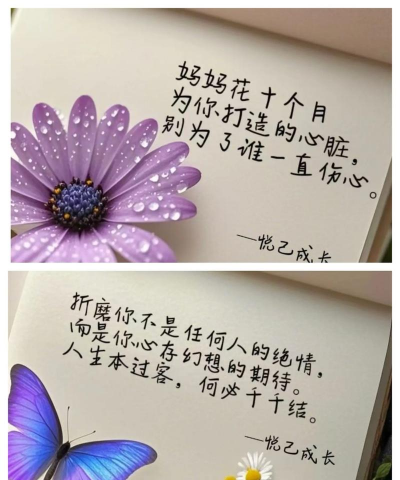 妈妈花十个月
为你打造的心脏，
别为了谁一直伤心。
—悦己成长
折磨你不是任何人的绝情，
而是你心存幻想的期待。
人生本过客，何必千千结。
—悦己成长